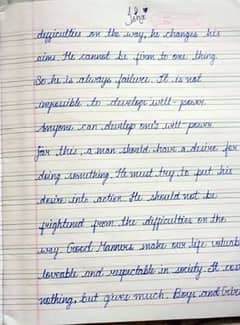 difficulties on the way, he changes his
aim. He cannot be firm to one thing.
So he is always failure. It is not
impossible to develope will-power.
Anyone can develop one's will power
for this, a man should have a desire for
doing something. He must try to put his
desire into action. He should not be
frightened from the difficulties on the
way. Good Manners make our life valuab
loveable and respectable in society. It cos
nothing, but gives much. Boys and Girls